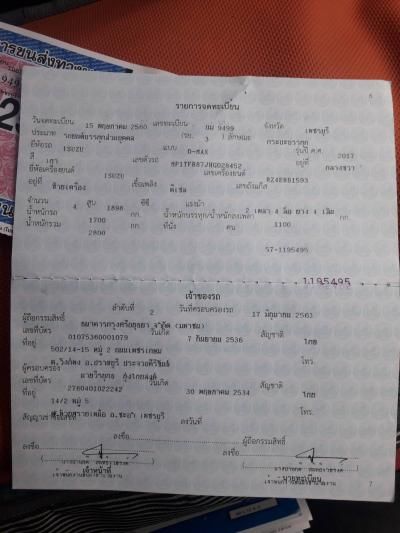 การขนส่งทางบก
6
รายการจดทะเบียน
วันจดทะเบียน 15 พฤษภาคม 2560 เลขทะเบียน ยม 9499 จังหวัด เพชรบุรี
ประเภท รถยนต์บรรทุกส่วนบุคคล (รย. 3 ) ลักษณะ กระบะบรรทุก
ยี่ห้อรถ ISUZU แบบ D-MAX รุ่นปี ค.ศ 2017
สี เทา เลขตัวรถ MP1TFR87JHG028452 อยู่ที่ กลางขวา
ยี่ห้อเครื่องยนต์ ISUZU เลขเครื่องยนต์ RZ4E881593
อยู่ที่ ซ้ายเครื่อง เชื้อเพลิง ดีเซล เลขถังแก๊ส
จำนวน 4 สูบ 1898 ซีซี แรงม้า 2 เพลา 4 ล้อ ยาง 4 เส้น
น้ำหนักรถ 1700 กก. น้ำหนักบรรทุก/น้ำหนักลงเพลา 1100 กก.
น้ำหนักรวม 2800 กก. ที่นั่ง คน
57-1195495
1195495
เจ้าของรถ
ลำดับที่ 2 วันที่ครอบครองรถ 17 มิถุนายน 2563
ผู้ถือกรรมสิทธิ์ ธนาคารกรุงศรีอยุธยา จำกัด (มหาชน)
เลขที่บัตร 0107536001079 วันเกิด 7 กันยายน 2536 สัญชาติ ไทย
ที่อยู่ 502/14-15 หมู่ 2 ถนนเพชรเกษม
ต.วังก์พง อ.ปราณบุรี ประจวบคีรีขันธ์ โทร.
ผู้ครอบครอง
เลขที่บัตร 2760401022242 วันเกิด 30 พฤษภาคม 2534 สัญชาติ ไทย
ที่อยู่ 14/2 หมู่ 5
ต.ห้วยทรายเหนือ อ.ชะอำ เพชรบุรี โทร.
ลงวันที่
ลงชื่อ ผู้ถือกรรมสิทธิ์
ลงชื่อ ลงชื่อ
เจ้าหน้าที่ นายทะเบียน
7